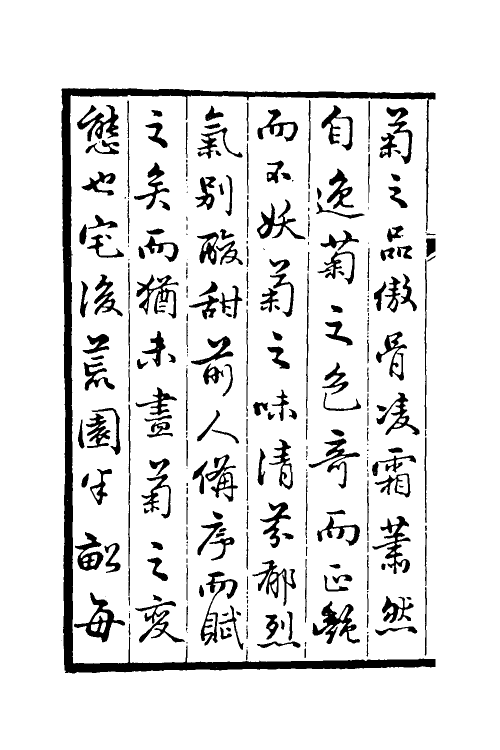 菊之品傲骨凌霜蕭然
自逸菊之色奇而正艷
而不妖菊之味清芬郁烈
氣别酸甜前人備序而賦
之矣而猶未盡菊之變
態也宅後荒園半畝每